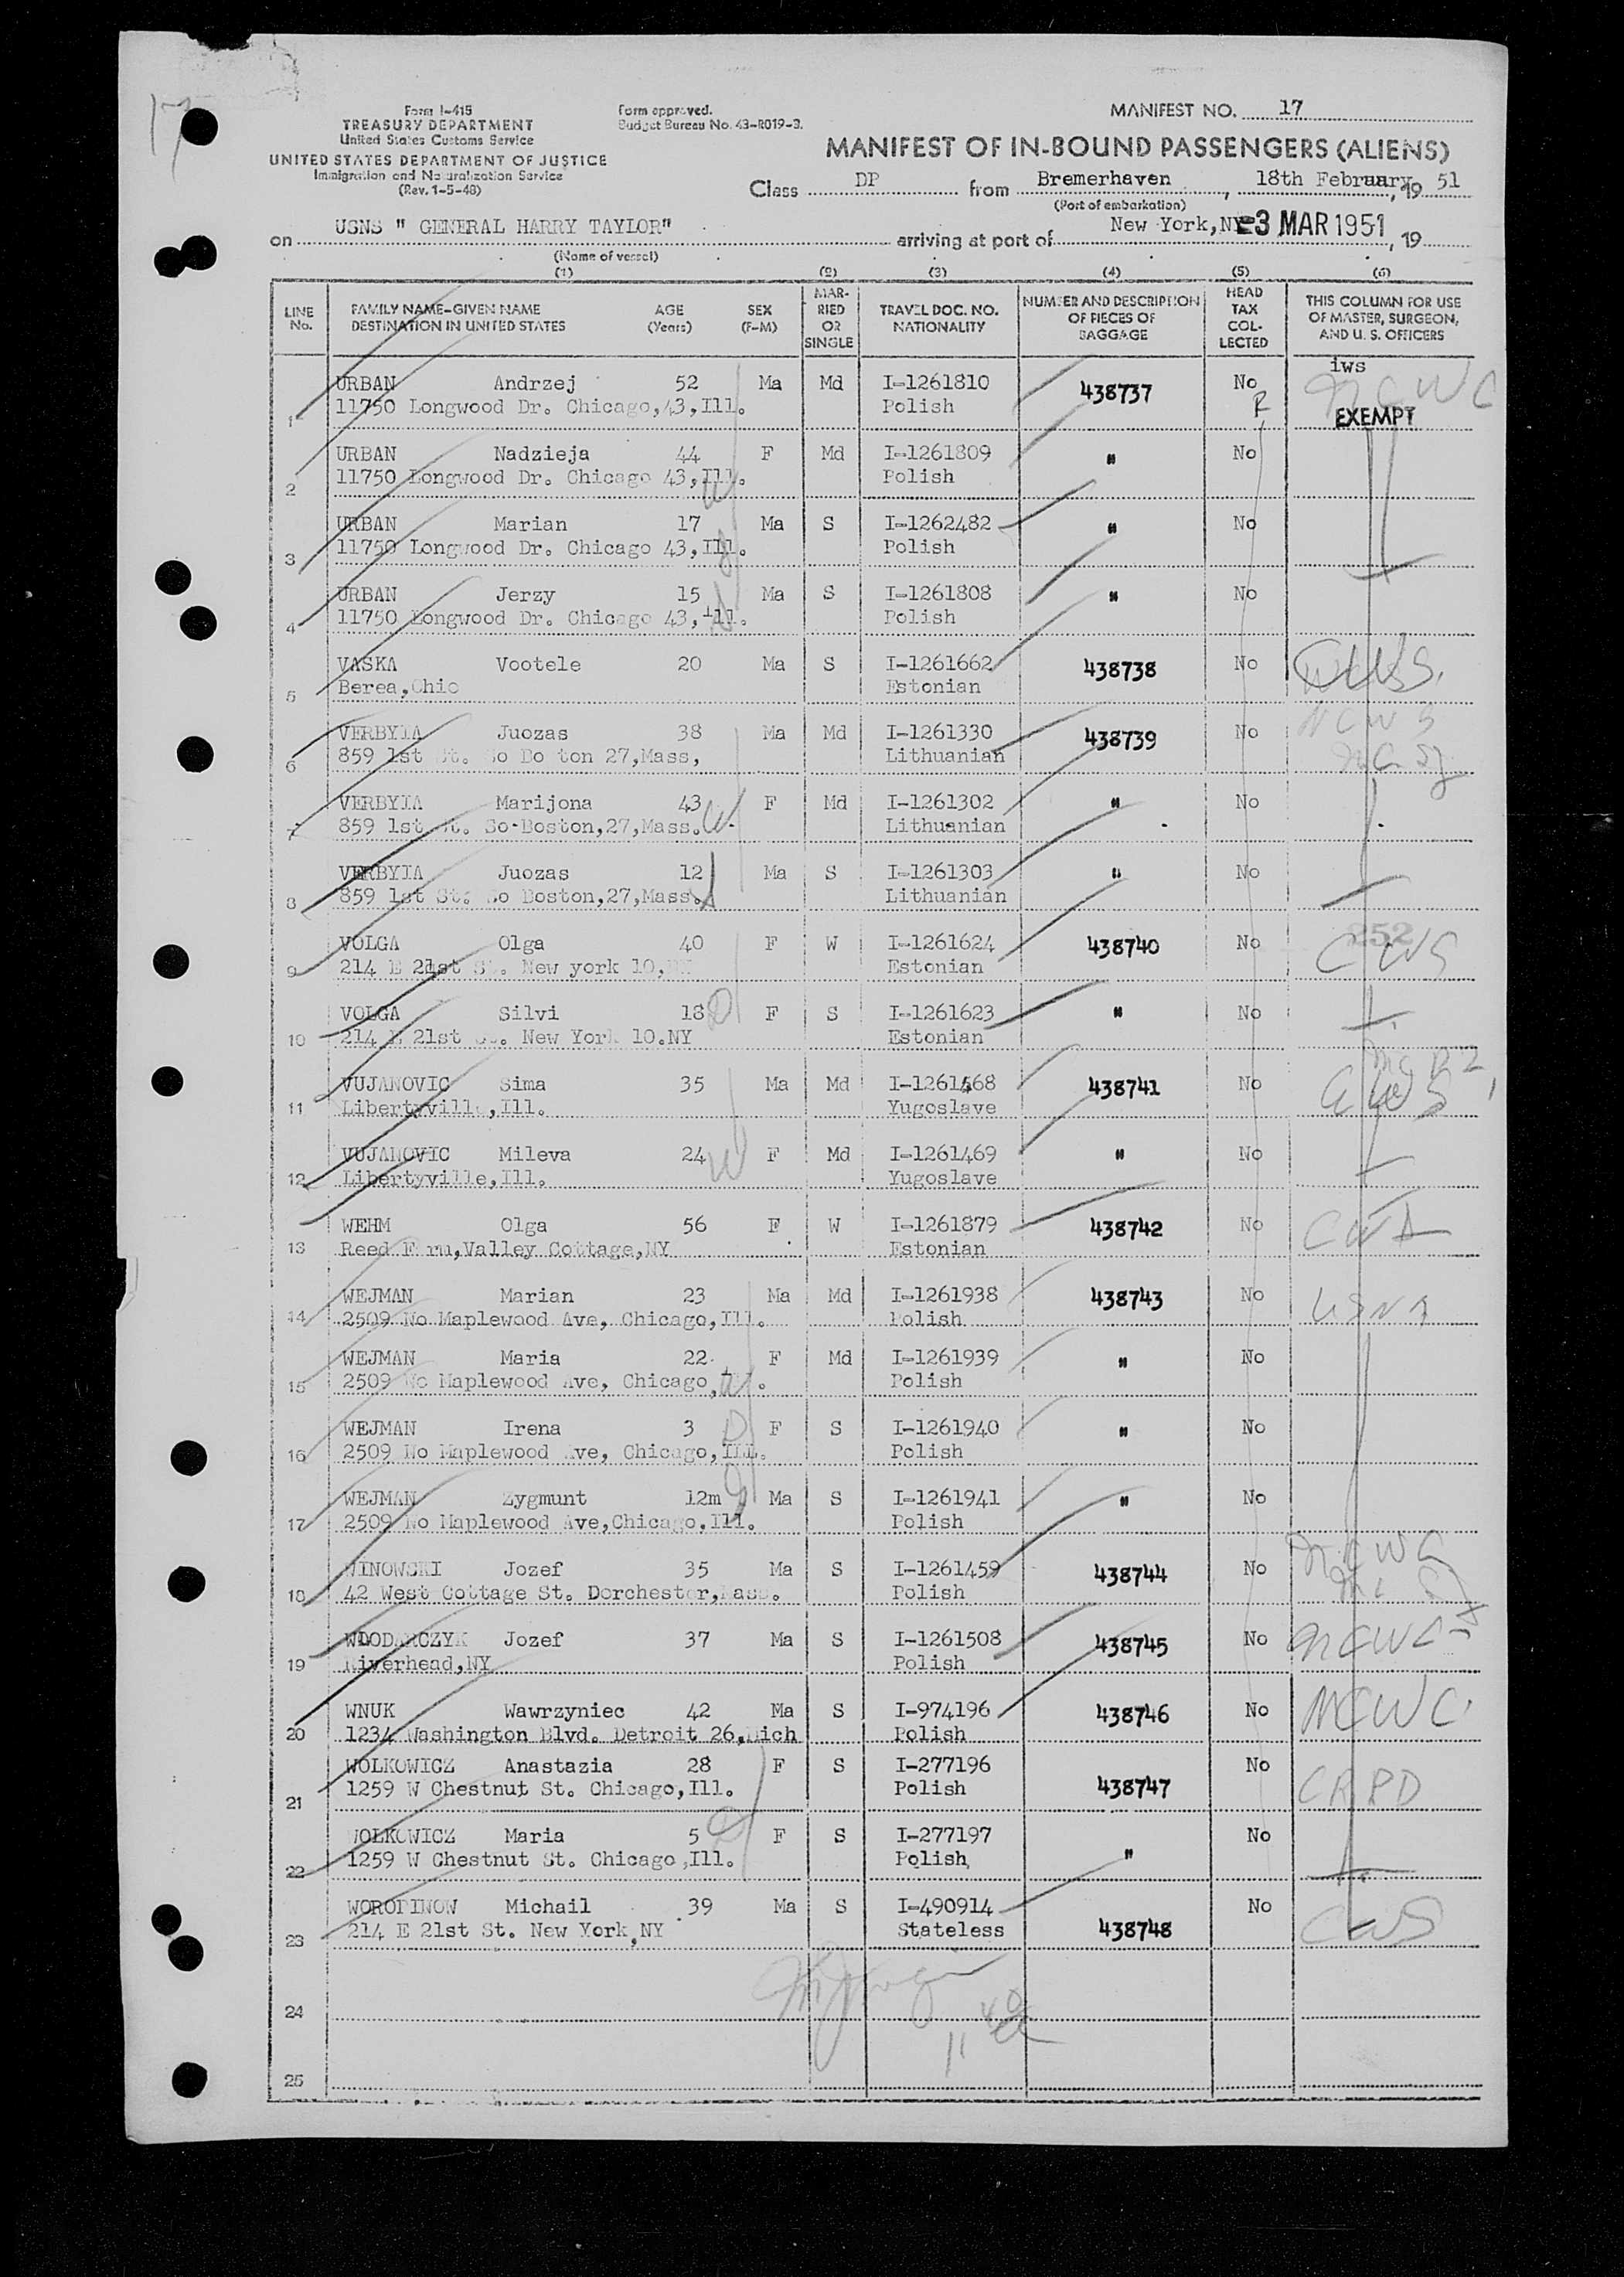 17
Form I-415
TREASURY DEPARTMENT
United States Customs Service
UNITED STATES DEPARTMENT OF JUSTICE
Immigration and Naturalization Service
(Rev. 1-5-48)
Form approved.
Budget Bureau No. 43-R019-3.
MANIFEST NO. 17
MANIFEST OF IN-BOUND PASSENGERS (ALIENS)
Class DP from Bremerhaven, 18th February, 19 51
(Port of embarkation)
on USNS " GENERAL HARRY TAYLOR" arriving at port of New York, NY -3 MAR 1951, 19
(Name of vessel)
(1) (2) (3) (4) (5) (6)
LINE No. FAMILY NAME-GIVEN NAME DESTINATION IN UNITED STATES AGE (Years) SEX (F-M) MARRIED OR SINGLE TRAVEL DOC. NO. NATIONALITY NUMBER AND DESCRIPTION OF PIECES OF BAGGAGE HEAD TAX COLLECTED THIS COLUMN FOR USE OF MASTER, SURGEON, AND U. S. OFFICERS
iws
1 URBAN Andrzej 52 Ma Md I-1261810 438737 No NCWC
11750 Longwood Dr. Chicago,43,Ill. Polish R EXEMPT
2 URBAN Nadzieja 44 F Md I-1261809 " No
11750 Longwood Dr. Chicago 43,Ill. Polish
3 URBAN Marian 17 Ma S I-1262482 " No
11750 Longwood Dr. Chicago 43,Ill. Polish
4 URBAN Jerzy 15 Ma S I-1261808 " No
11750 Longwood Dr. Chicago 43,Ill. Polish
5 VASKA Vootele 20 Ma S I-1261662 438738 No
Berea,Ohio Estonian
6 VERBYIA Juozas 38 Ma Md I-1261330 438739 No
859 1st St. So Bo ton 27,Mass, Lithuanian
7 VERBYIA Marijona 43 F Md I-1261302 " No
859 1st St. So-Boston,27,Mass. Lithuanian
8 VERBYIA Juozas 12 Ma S I-1261303 " No
859 1st St. So Boston,27,Mass. Lithuanian
252
9 VOLGA Olga 40 F W I-1261624 438740 No CWS
214 E 21st St. New york 10,NY Estonian
10 VOLGA Silvi 18 F S I-1261623 " No
214 E 21st St. New York 10.NY Estonian
11 VUJANOVIC Sima 35 Ma Md I-1261468 438741 No CWS
Libertyville,Ill. Yugoslave
12 VUJANOVIC Mileva 24 F Md I-1261469 " No
Libertyville,Ill. Yugoslave
13 WEHM Olga 56 F W I-1261879 438742 No
Reed Farm,Valley Cottage,NY Estonian
14 WEJMAN Marian 23 Ma Md I-1261938 438743 No
2509 No Maplewood Ave, Chicago,Ill. Polish
15 WEJMAN Maria 22 F Md I-1261939 " No
2509 No Maplewood Ave, Chicago, Polish
16 WEJMAN Irena 3 F S I-1261940 " No
2509 No Maplewood Ave, Chicago,Ill. Polish
17 WEJMAN Zygmunt 12m Ma S I-1261941 " No
2509 No Maplewood Ave,Chicago.Ill. Polish
18 WINOWSKI Jozef 35 Ma S I-1261459 438744 No NCWC
42 West Cottage St. Dorchester,Mass. Polish
19 WLODARCZYK Jozef 37 Ma S I-1261508 438745 No NCWC
Riverhead,NY Polish
20 WNUK Wawrzyniec 42 Ma S I-974196 438746 No NCWC
1234 Washington Blvd. Detroit 26,Mich Polish
21 WOLKOWICZ Anastazia 28 F S I-277196 438747 No CRPD
1259 W Chestnut St. Chicago,Ill. Polish
22 WOLKOWICZ Maria 5 F S I-277197 " No
1259 W Chestnut St. Chicago,Ill. Polish
23 WORODINOW Michail 39 Ma S I-490914 438748 No CWS
214 E 21st St. New York,NY Stateless
24
25